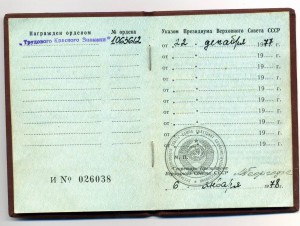 Награжден орденом № ордена
"Трудового Красного Знамени" 1063612
И № 026038
Указом Президиума Верховного Совета СССР
от 22 декабря 1977
от " " 19
от " " 19
от " " 19
от " " 19
от " " 19
от " " 19
от " " 19
М. П.
Секретарь Президиума
Верховного Совета СССР
6 января 1978